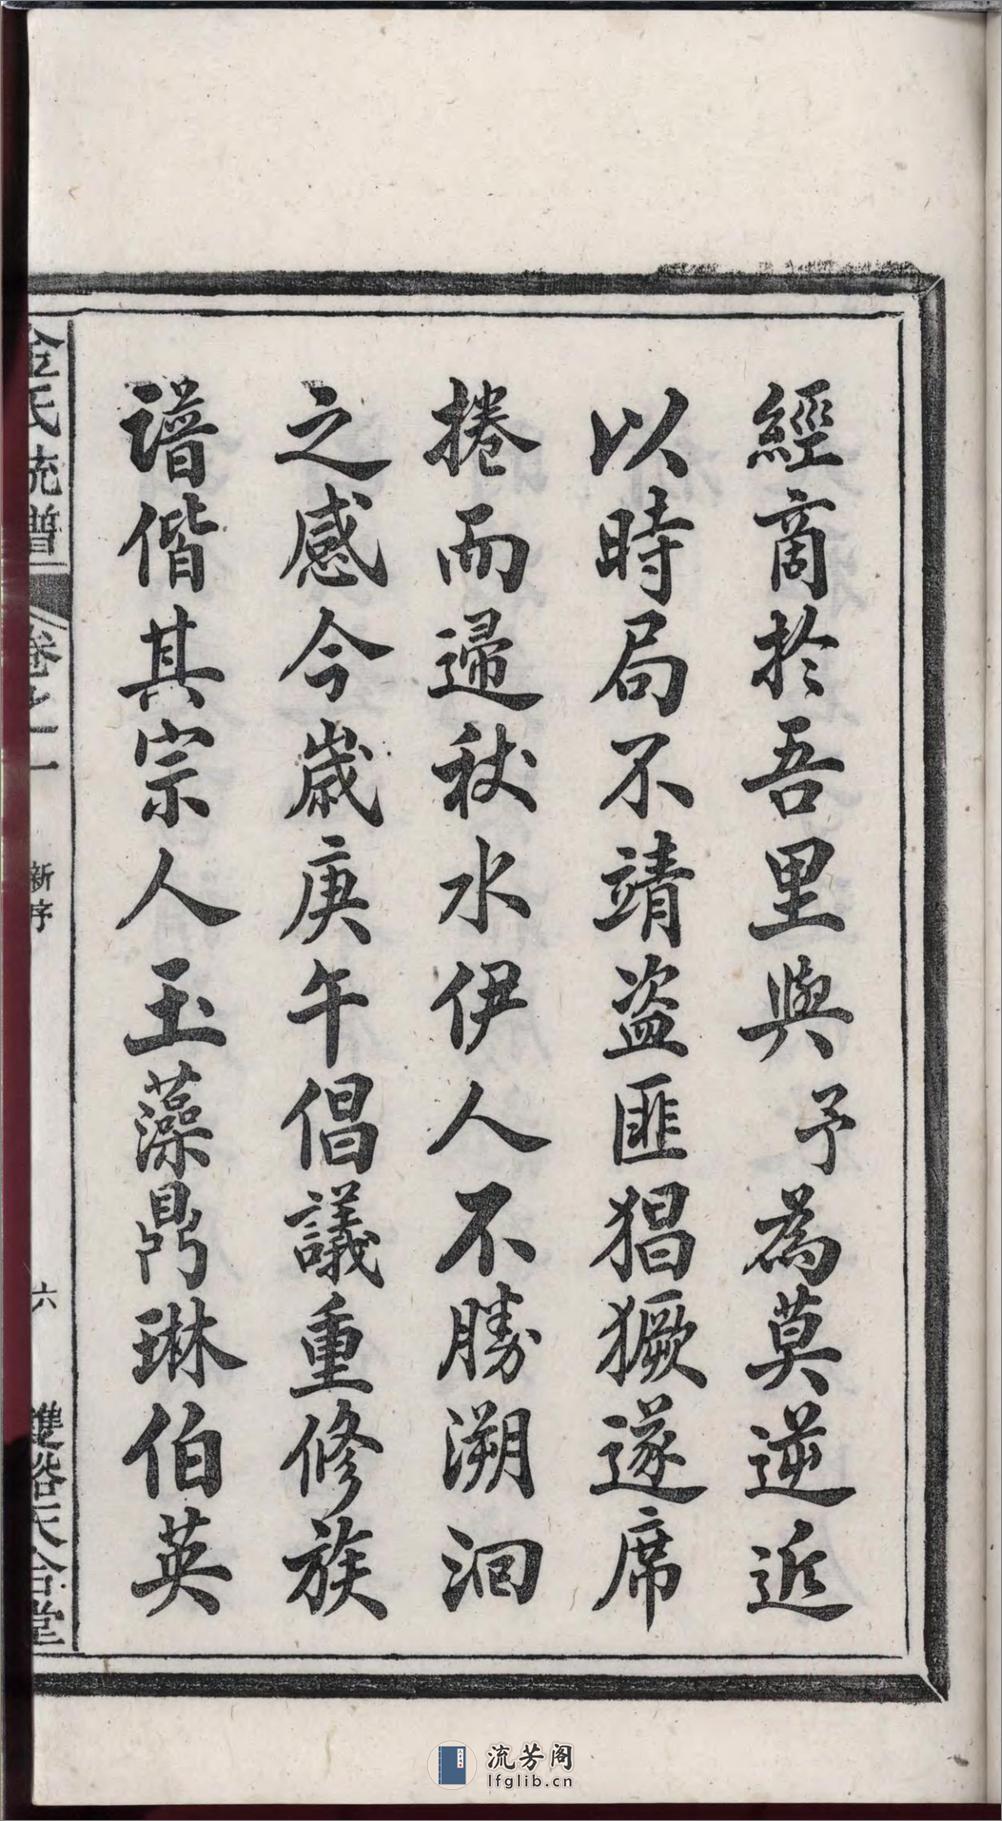 經商於吾里與予為莫逆近
以時局不靖盗匪猖獗遂席
捲而歸秋水伊人不勝溯洄
之感今歲庚午倡議重修族
譜偕其宗人玉藻鼎琳伯英
金氏統譜
卷之一
新序
六
雙谿天合堂
流芳阁
lfglib.cn